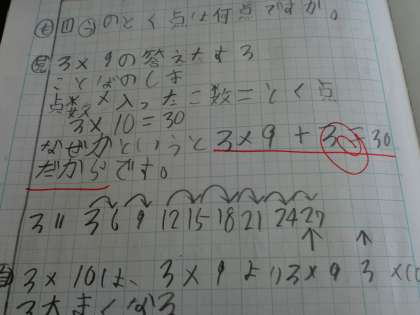 も 11 こ のとく点は何点ですか。
3×9の答えたす3
ことばのしき
点数×入った数=とく点
3×10=30
なぜかというと 3×9+3=30
だからです。
3 || 3 6 9 12 15 18 21 24 27
3×10は、3×9より3×9 3×10
3大きくなる